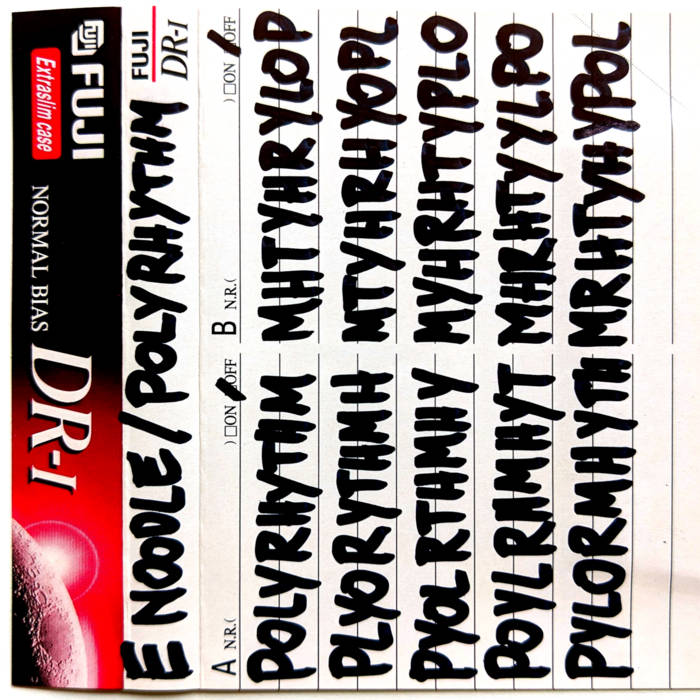 FUJI
Extraslim case
NORMAL BIAS
DR-I
E NOODLE/POLYRHYTHM
FUJI
DR-I
A N.R.( )□ON □OFF
POLYRHYTHM
PLYORYTHMH
PYOLRTHMHY
PYLORMHYTH
B N.R.( )□ON □OFF
MHTYHRYLOP
MTYHRHYOPL
MYHRHTYPLO
MHRHTYYLPO
MRHTYHYPOL